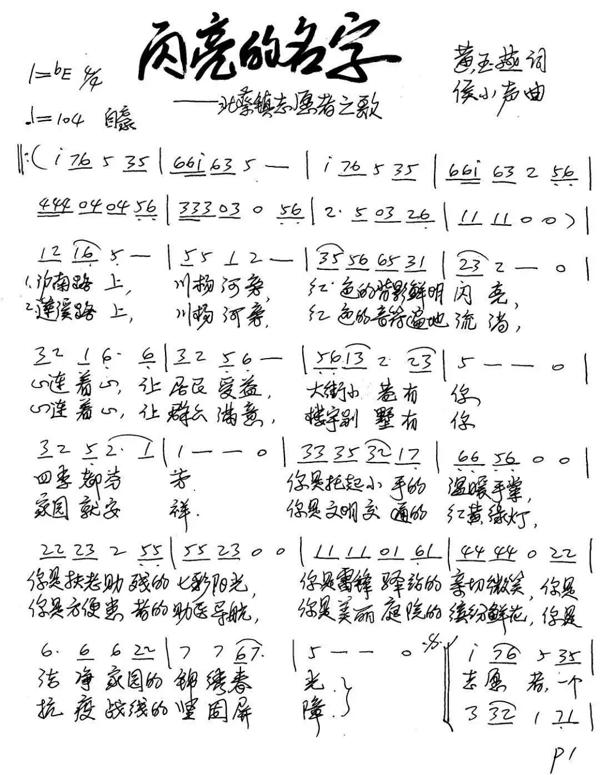 闪亮的名字
1=bE 4/4
黄玉燕词
♩=104 自豪
——北蔡镇志愿者之歌
侯小声曲
‖:( i 76 5 35 | 66i 63 5 — | i 76 5 35 | 66i 63 2 56 |
444 04 04 56 | 333 03 0 56 | 2· 5 03 26 | 11 11 0 0 )
12 16 5 — | 55 1 2 — | 35 56 65 31 | 23 2 — 0 |
1.沪南路 上, 川杨河旁, 红色的背影鲜明闪亮,
2.莲溪路 上, 川杨河旁, 红色的音符遍地流淌,
32 1 6· 6 | 32 5 6 — | 56 13 2 23 | 5 — — 0 |
心连着心, 让居民受益, 大街小巷有 你
心连着心, 让群众满意, 楼宇别墅有 你
32 5 2· 1 | 1 — — 0 | 33 35 32 17 | 66 56 0 0 |
四季都芬 芳 你是托起小手的 温暖手掌,
家园就安 祥. 你是文明交通的 红黄绿灯,
22 23 2 55 | 55 23 0 0 | 11 11 01 61 | 44 44 0 22 |
你是扶老助残的七彩阳光, 你是雷锋驿站的亲切微笑, 你是
你是方便患者的助医导航, 你是美丽庭院的缤纷鲜花, 你是
6· 6 6 22 | 7 7 67· | 5 — — 0 | i 76 5 35 |
洁净家园的锦绣春 光. 志愿者,一个
抗疫战线的坚固屏 障. 3 32 1 71 |
P1